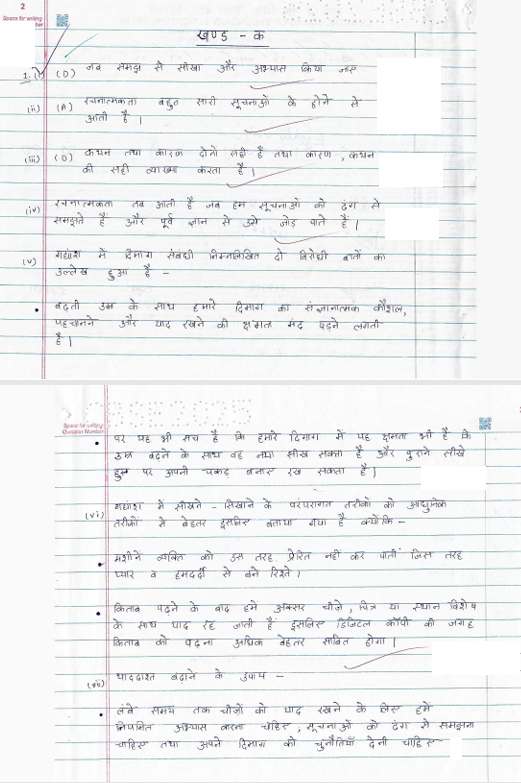 2
Space for writing
खण्ड - क
1. (i) (D) जब समझ से सीखा और अभ्यास किया जाए
(ii) (A) रचनात्मकता बहुत सारी सूचनाओं के होने से
आती है।
(iii) (D) कथन तथा कारण दोनों सही हैं तथा कारण, कथन
की सही व्याख्या करता है।
(iv) रचनात्मकता तब आती है जब हम सूचनाओं को ढंग से
समझते हैं और पूर्व ज्ञान से उसे जोड़ पाते हैं।
(v) गद्यांश में दिमाग संबंधी निम्नलिखित दो विरोधी बातों का
उल्लेख हुआ है -
• बढ़ती उम्र के साथ हमारे दिमाग का संज्ञानात्मक कौशल,
पहचानने और याद रखने की क्षमता मंद पड़ने लगती
है।
Space for writing
Question Number
• पर यह भी सच है कि हमारे दिमाग में यह क्षमता भी है कि
उम्र बढ़ने के साथ वह नया सीख सकता है और पुराने सीखे
हुए पर अपनी पकड़ बनाए रख सकता है।
(vi) गद्यांश में सीखने - सिखाने के परंपरागत तरीकों को आधुनिक
तरीकों से बेहतर इसलिए बताया गया है क्योंकि -
• मशीनें व्यक्ति को उस तरह प्रेरित नहीं कर पातीं जिस तरह
प्यार व हमदर्दी से बने रिश्ते।
• किताब पढ़ने के बाद हमें अक्सर चीज़ें, चित्र या स्थान विशेष
के साथ याद रह जाती हैं इसलिए डिजिटल कॉपी की जगह
किताब को पढ़ना अधिक बेहतर साबित होगा।
(vii) याददाश्त बढ़ाने के उपाय -
• लंबे समय तक चीज़ों को याद रखने के लिए हमें
नियमित अभ्यास करना चाहिए, सूचनाओं को ढंग से समझना
चाहिए तथा अपने दिमाग को चुनौतियाँ देनी चाहिए